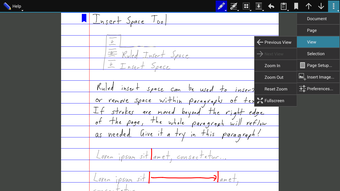 Help
Insert Space Tool
Ruled Insert Space
Insert Space
Ruled insert space can be used to insert
or remove space within paragraphs of text
If strokes are moved beyond the right edge
of the page, the whole paragraph will reflow
as needed. Give it a try in this paragraph!
Lorem ipsum sit amet, consectetur...
Lorem ipsum sit amet,
consectetur
Document
Page
View
Selection
Page Setup...
Insert Image...
Preferences...
Previous View
Zoom In
Zoom Out
Reset Zoom
Fullscreen